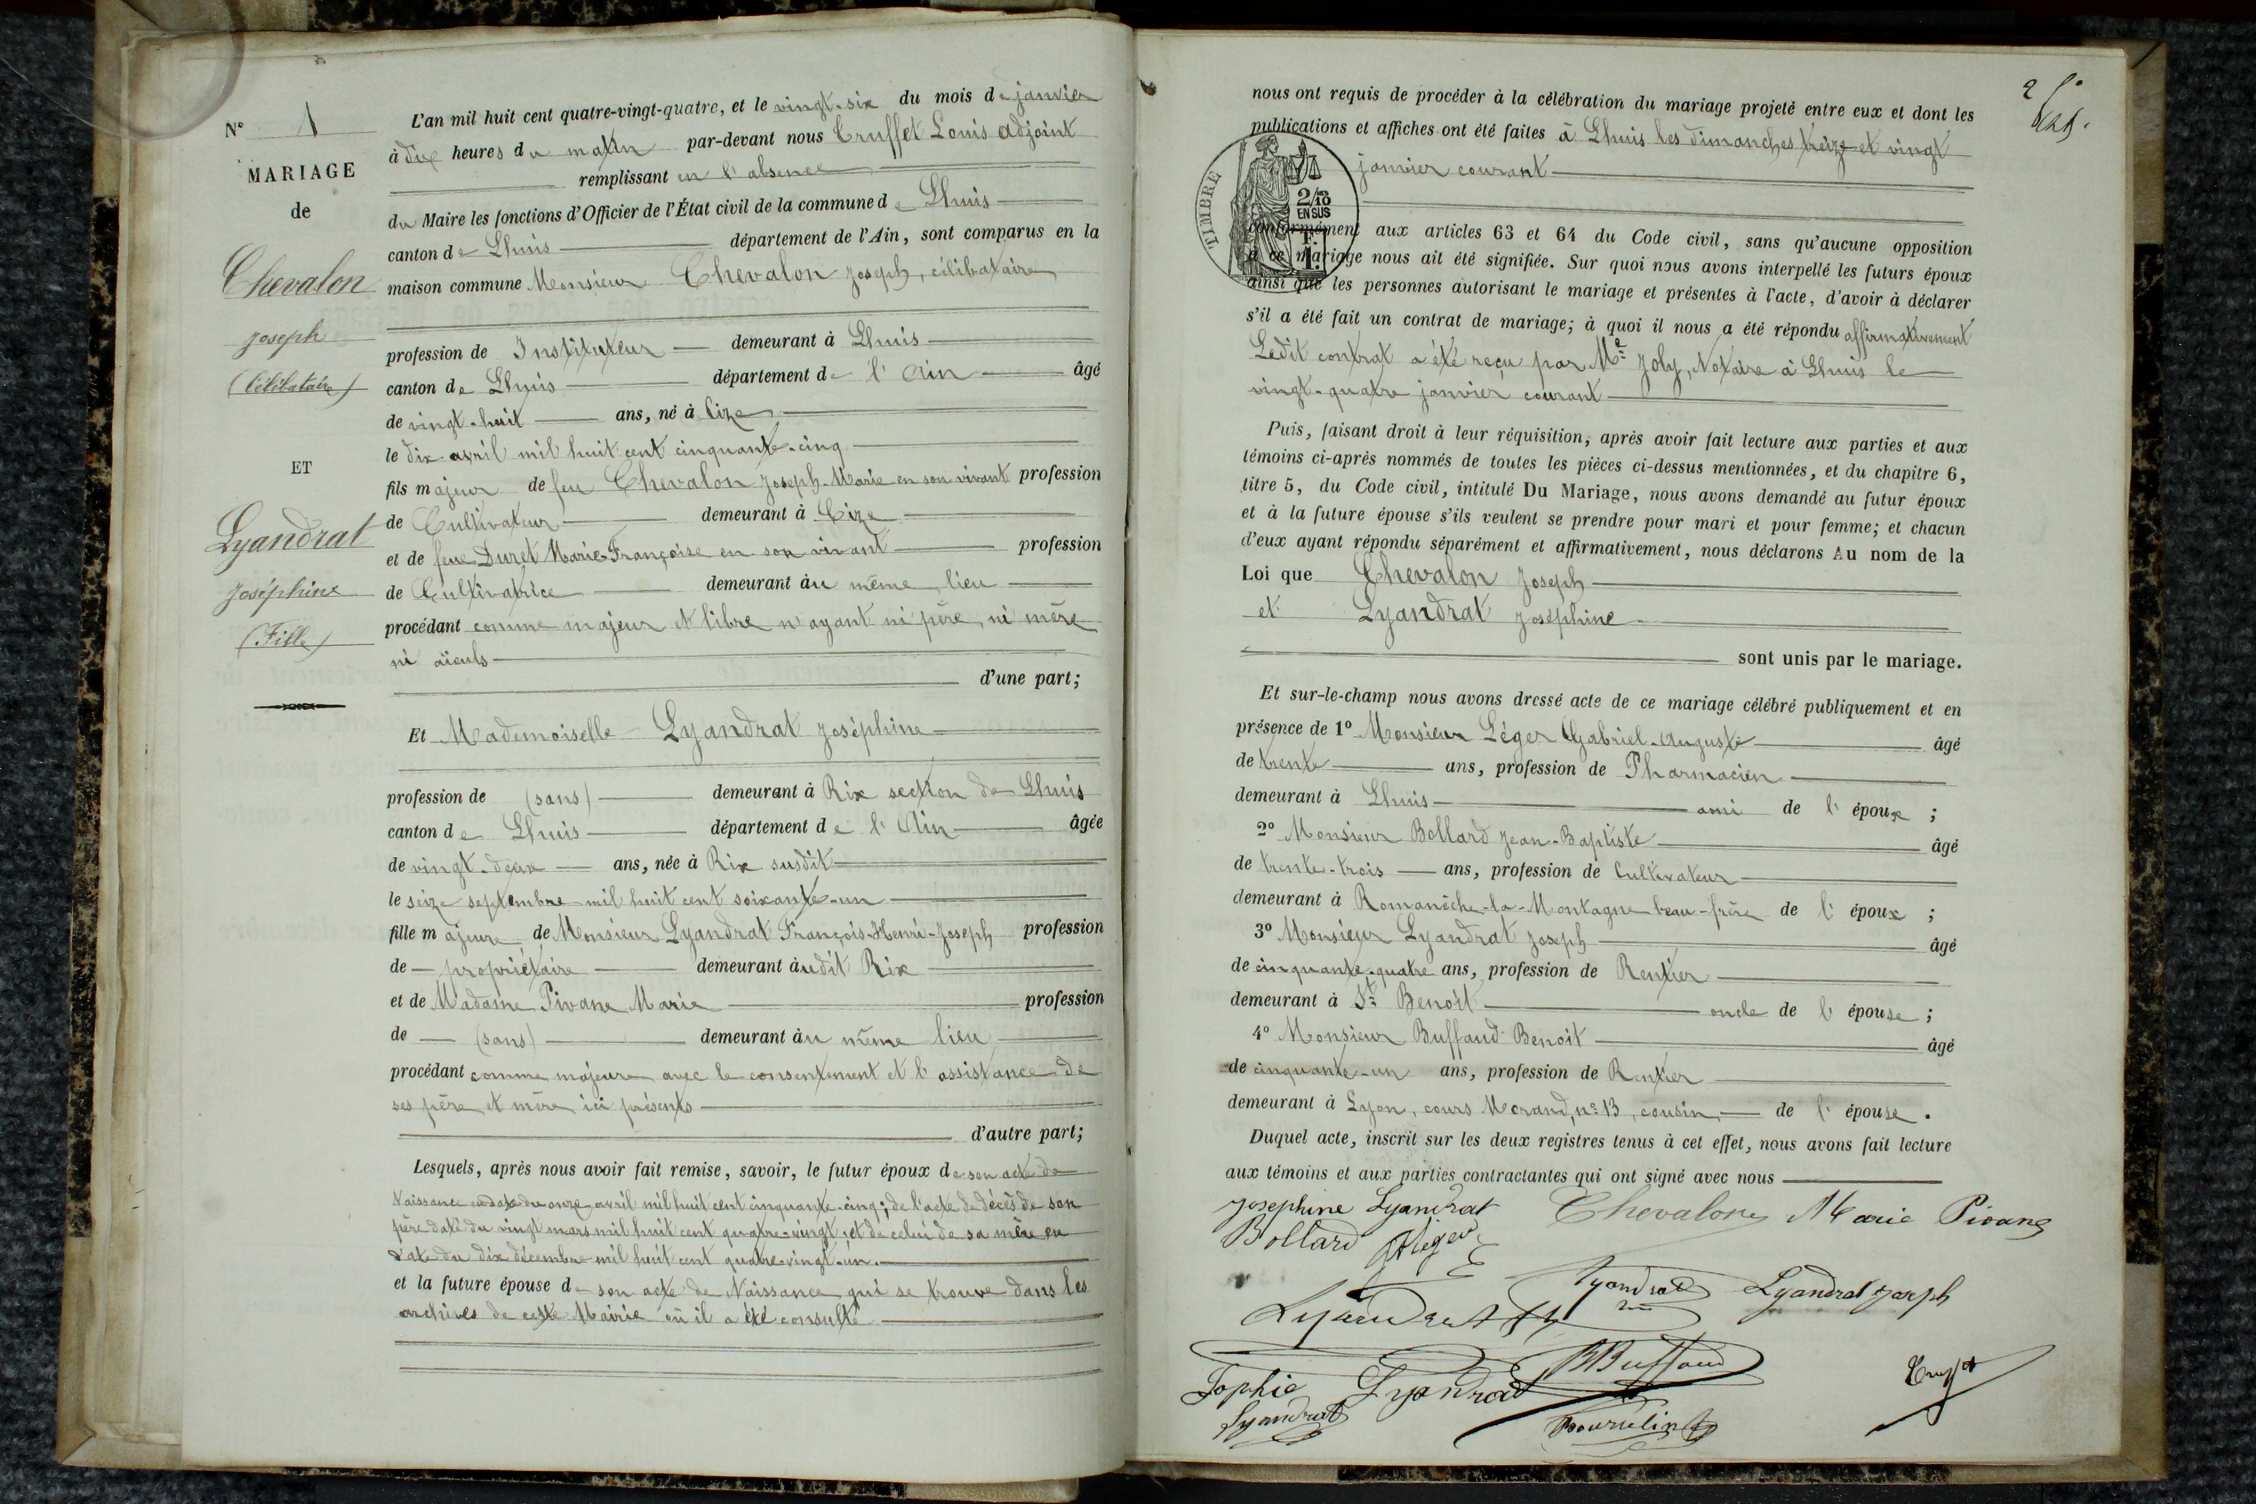 N° 1
MARIAGE
de
Chevalon
Joseph
(Célibataire)
ET
Lyandrat
Joséphine
(Fille)
L'an mil huit cent quatre-vingt-quatre, et le vingt-six du mois de janvier
à dix heures du matin par-devant nous Truffet Louis adjoint
remplissant en l'absence
du Maire les fonctions d'Officier de l'État civil de la commune de Lhuis
canton de Lhuis département de l'Ain, sont comparus en la
maison commune Monsieur Chevalon Joseph, célibataire
profession de Instituteur demeurant à Lhuis
canton de Lhuis département de l'Ain âgé
de vingt-huit ans, né à Cize
le dix avril mil huit cent cinquante-cinq
fils majeur de feu Chevalon Joseph-Marie en son vivant profession
de Cultivateur demeurant à Cize
et de feue Duret Marie-Françoise en son vivant profession
de Cultivatrice demeurant au même lieu
procédant comme majeur et libre n'ayant ni père, ni mère
ni aïeuls
d'une part;
Et Mademoiselle Lyandrat Joséphine
profession de (sans) demeurant à Rix section de Lhuis
canton de Lhuis département de l'Ain âgée
de vingt-deux ans, née à Rix susdit
le seize septembre mil huit cent soixante-un
fille majeure de Monsieur Lyandrat François-Henri-Joseph profession
de propriétaire demeurant audit Rix
et de Madame Pivane Marie profession
de (sans) demeurant au même lieu
procédant comme majeure avec le consentement et l'assistance de
ses père et mère ici présents
d'autre part;
Lesquels, après nous avoir fait remise, savoir, le futur époux de son acte de
Naissance en date du onze avril mil huit cent cinquante-cinq; de l'acte de décès de son
père daté du vingt mars mil huit cent quatre-vingt, et de celui de sa mère en
date du dix décembre mil huit cent quatre-vingt-un.
et la future épouse de son acte de Naissance qui se trouve dans les
archives de cette Mairie où il a été consulté
2
nous ont requis de procéder à la célébration du mariage projeté entre eux et dont les
publications et affiches ont été faites à Lhuis les dimanches treize et vingt
janvier courant
TIMBRE
2/10
EN SUS
F.
1.
conformément aux articles 63 et 64 du Code civil, sans qu'aucune opposition
à ce mariage nous ait été signifiée. Sur quoi nous avons interpellé les futurs époux
ainsi que les personnes autorisant le mariage et présentes à l'acte, d'avoir à déclarer
s'il a été fait un contrat de mariage; à quoi il nous a été répondu affirmativement
Ledit contrat a été reçu par Me Joly, Notaire à Lhuis le
vingt-quatre janvier courant
Puis, faisant droit à leur réquisition, après avoir fait lecture aux parties et aux
témoins ci-après nommés de toutes les pièces ci-dessus mentionnées, et du chapitre 6,
titre 5, du Code civil, intitulé Du Mariage, nous avons demandé au futur époux
et à la future épouse s'ils veulent se prendre pour mari et pour femme; et chacun
d'eux ayant répondu séparément et affirmativement, nous déclarons Au nom de la
Loi que Chevalon Joseph
et Lyandrat Joséphine
sont unis par le mariage.
Et sur-le-champ nous avons dressé acte de ce mariage célébré publiquement et en
présence de 1° Monsieur Léger Gabriel-Auguste âgé
de trente ans, profession de Pharmacien
demeurant à Lhuis ami de l'époux ;
2° Monsieur Bollard Jean-Baptiste âgé
de trente-trois ans, profession de Cultivateur
demeurant à Romanèche-la-Montagne beau-frère de l'époux ;
3° Monsieur Lyandrat Joseph âgé
de cinquante-quatre ans, profession de Rentier
demeurant à St Benoît oncle de l'épouse ;
4° Monsieur Buffaud Benoit âgé
de cinquante-un ans, profession de Rentier
demeurant à Lyon, cours Morand, n° 13, cousin de l'épouse.
Duquel acte, inscrit sur les deux registres tenus à cet effet, nous avons fait lecture
aux témoins et aux parties contractantes qui ont signé avec nous
Josephine Lyandrat Chevalon Marie Pivane
Bollard Léger
Lyandrat Lyandrat Lyandrat Joseph
Sophie Lyandrat BBuffaud
Lyandrat